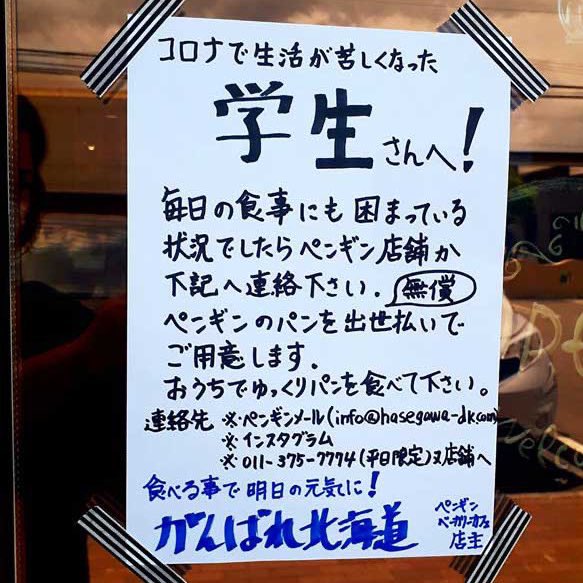 コロナで生活が苦しくなった
学生さんへ!
毎日の食事にも困まっている
状況でしたらペンギン店舗か
下記へ連絡下さい. 無償
ペンギンのパンを出世払いで
ご用意します.
おうちでゆっくりパンを食べて下さい。
連絡先 ※ペンギンメール(info@hasegawa-dk.com)
※インスタグラム
※011-375-7774(平日限定)又店舗へ
食べる事で明日の元気に!
がんばれ北海道
ペンギン
ベーカリーカフェ
店主